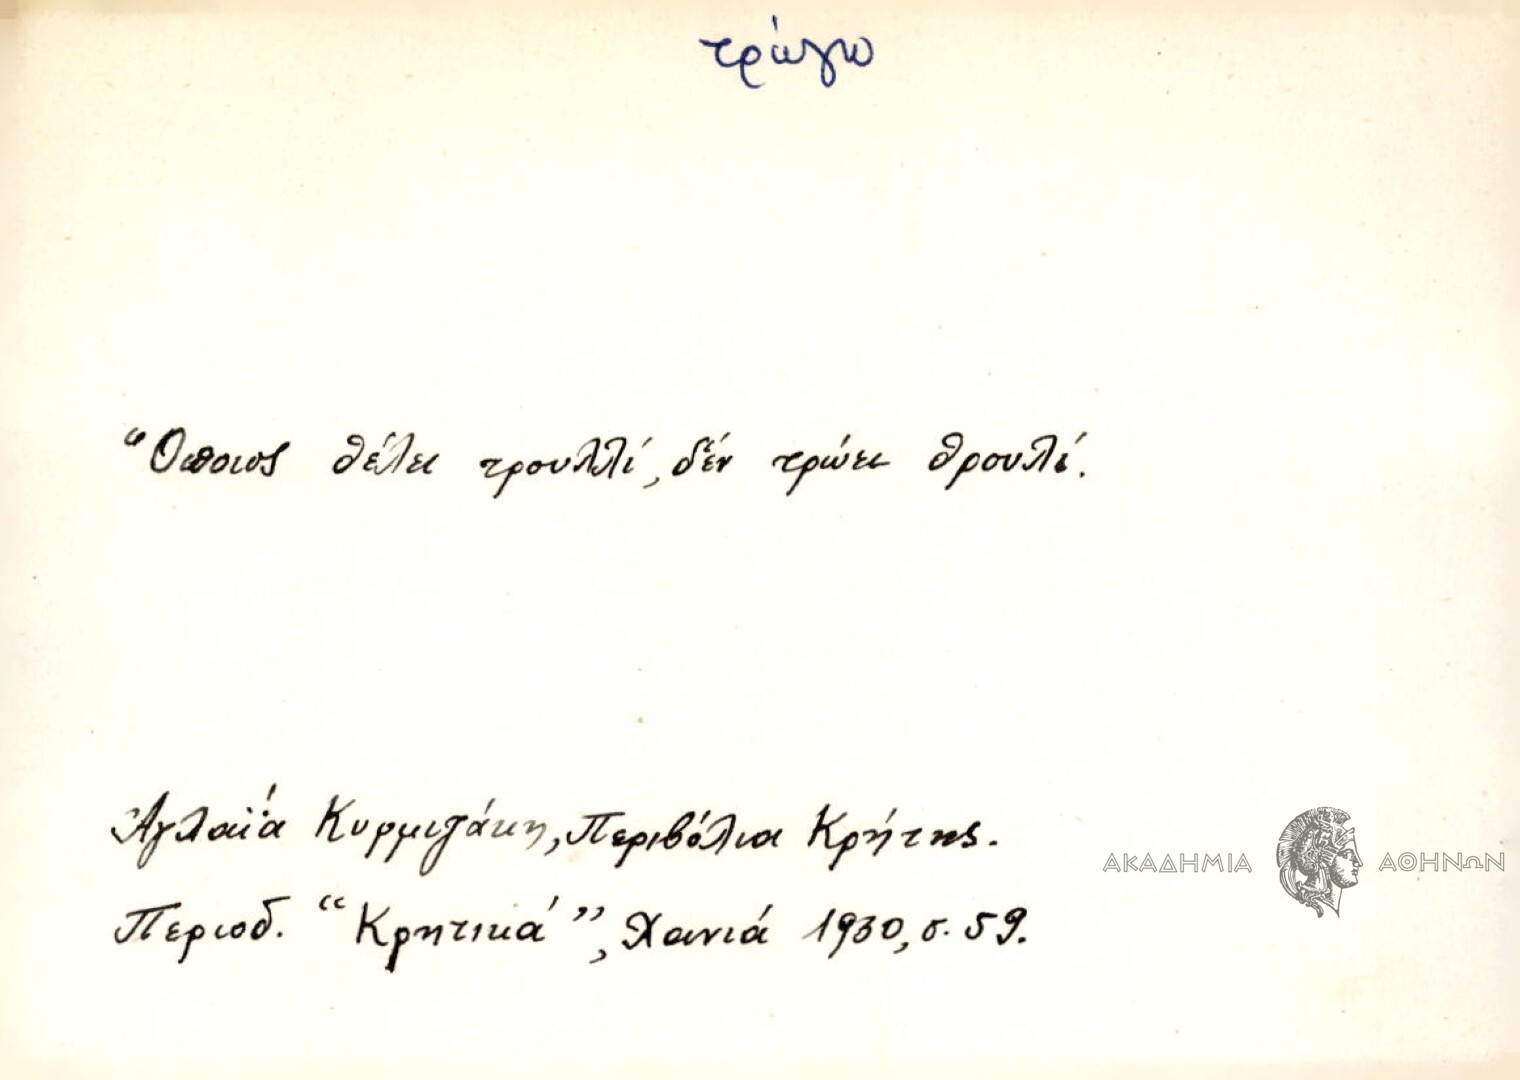 τρώγω
Ὅποιος θέλει τρουλλί, δέν τρώει θρουλί.
Ἀγλαΐα Κυρμιζάκη, Περιβόλια Κρήτης.
ΑΚΑΔΗΜΙΑ ΑΘΗΝΩΝ
Περιοδ. "Κρητικά", Χανιά 1930, σ. 59.